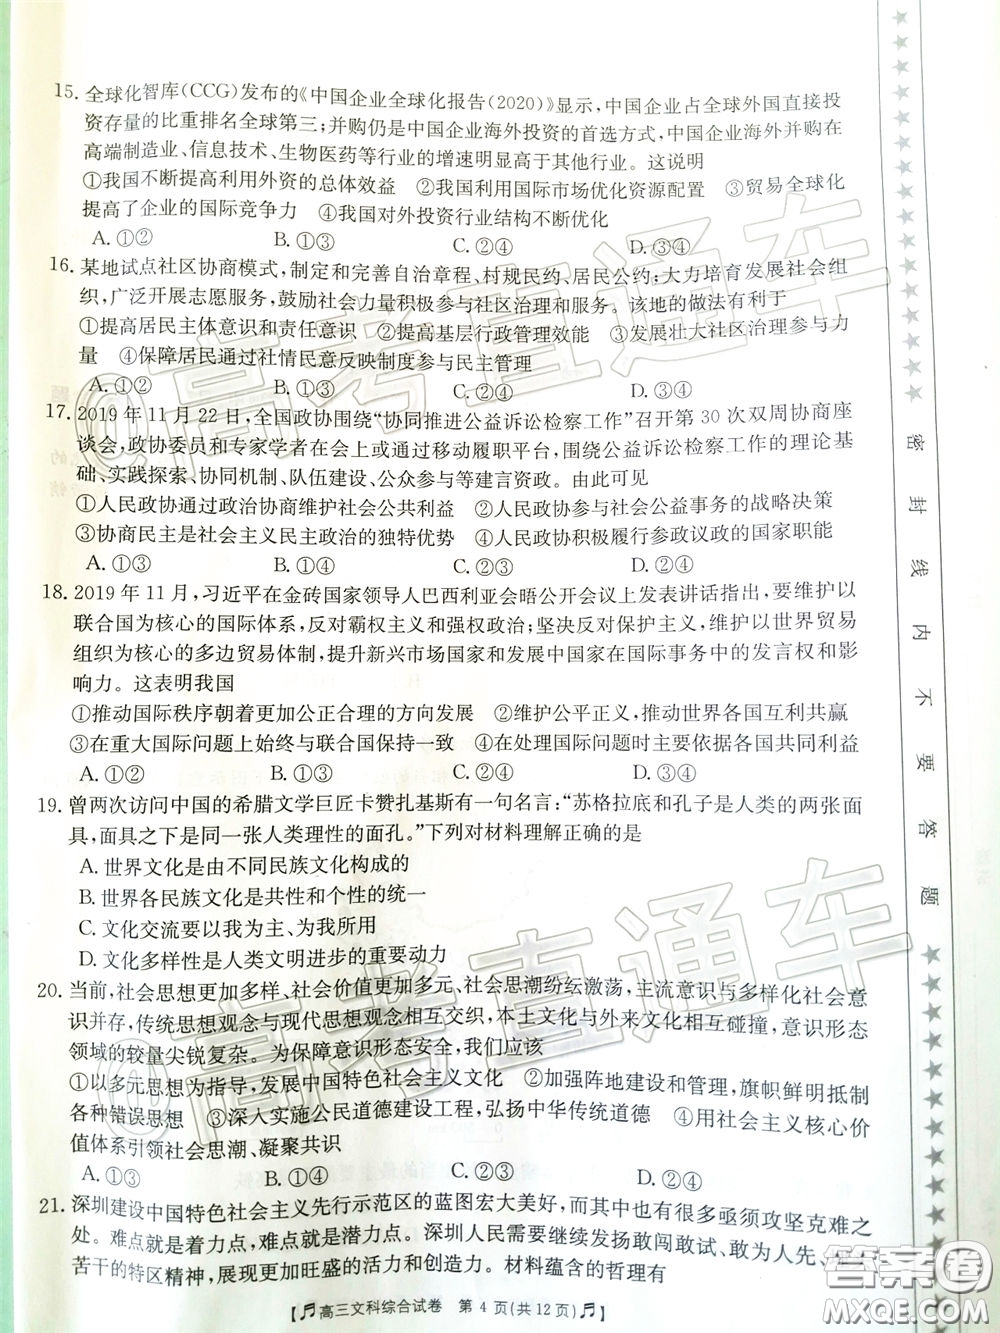 15. 全球化智库(CCG)发布的《中国企业全球化报告(2020)》显示,中国企业占全球外国直接投
资存量的比重排名全球第三;并购仍是中国企业海外投资的首选方式,中国企业海外并购在
高端制造业、信息技术、生物医药等行业的增速明显高于其他行业。这说明
①我国不断提高利用外资的总体效益 ②我国利用国际市场优化资源配置 ③贸易全球化
提高了企业的国际竞争力 ④我国对外投资行业结构不断优化
A. ①② B. ①③ C. ②④ D. ③④
16. 某地试点社区协商模式,制定和完善自治章程、村规民约、居民公约;大力培育发展社会组
织,广泛开展志愿服务,鼓励社会力量积极参与社区治理和服务。该地的做法有利于
①提高居民主体意识和责任意识 ②提高基层行政管理效能 ③发展壮大社区治理参与力
量 ④保障居民通过社情民意反映制度参与民主管理
A. ①② B. ①③ C. ②④ D. ③④
17. 2019 年 11 月 22 日,全国政协围绕“协同推进公益诉讼检察工作”召开第 30 次双周协商座
谈会,政协委员和专家学者在会上或通过移动履职平台,围绕公益诉讼检察工作的理论基
础、实践探索、协同机制、队伍建设、公众参与等建言资政。由此可见
①人民政协通过政治协商维护社会公共利益 ②人民政协参与社会公益事务的战略决策
③协商民主是社会主义民主政治的独特优势 ④人民政协积极履行参政议政的国家职能
A. ①③ B. ①④ C. ②③ D. ②④
18. 2019 年 11 月,习近平在金砖国家领导人巴西利亚会晤公开会议上发表讲话指出,要维护以
联合国为核心的国际体系,反对霸权主义和强权政治;坚决反对保护主义,维护以世界贸易
组织为核心的多边贸易体制,提升新兴市场国家和发展中国家在国际事务中的发言权和影
响力。这表明我国
①推动国际秩序朝着更加公正合理的方向发展 ②维护公平正义,推动世界各国互利共赢
③在重大国际问题上始终与联合国保持一致 ④在处理国际问题时主要依据各国共同利益
A. ①② B. ①③ C. ②④ D. ③④
19. 曾两次访问中国的希腊文学巨匠卡赞扎基斯有一句名言:“苏格拉底和孔子是人类的两张面
具,面具之下是同一张人类理性的面孔。”下列对材料理解正确的是
A. 世界文化是由不同民族文化构成的
B. 世界各民族文化是共性和个性的统一
C. 文化交流要以我为主、为我所用
D. 文化多样性是人类文明进步的重要动力
20. 当前,社会思想更加多样、社会价值更加多元、社会思潮纷纭激荡,主流意识与多样化社会意
识并存,传统思想观念与现代思想观念相互交织,本土文化与外来文化相互碰撞,意识形态
领域的较量尖锐复杂。为保障意识形态安全,我们应该
①以多元思想为指导,发展中国特色社会主义文化 ②加强阵地建设和管理,旗帜鲜明抵制
各种错误思想 ③深入实施公民道德建设工程,弘扬中华传统道德 ④用社会主义核心价
值体系引领社会思潮、凝聚共识
A. ①② B. ①③ C. ②③ D. ②④
21. 深圳建设中国特色社会主义先行示范区的蓝图宏大美好,而其中也有很多亟须攻坚克难之
处。难点就是着力点,难点就是潜力点。深圳人民需要继续发扬敢闯敢试、敢为人先、埋头
苦干的特区精神,展现更加旺盛的活力和创造力。材料蕴含的哲理有
【高三文科综合试卷 第 4 页(共 12 页)】
密封线内不要答题
@高考直通车
@高考直通车
答案圈
MXQE.COM